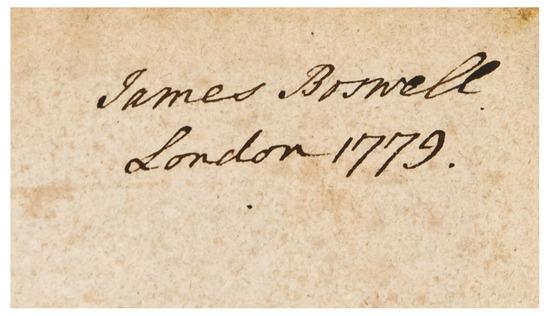 James Boswell
London 1779.